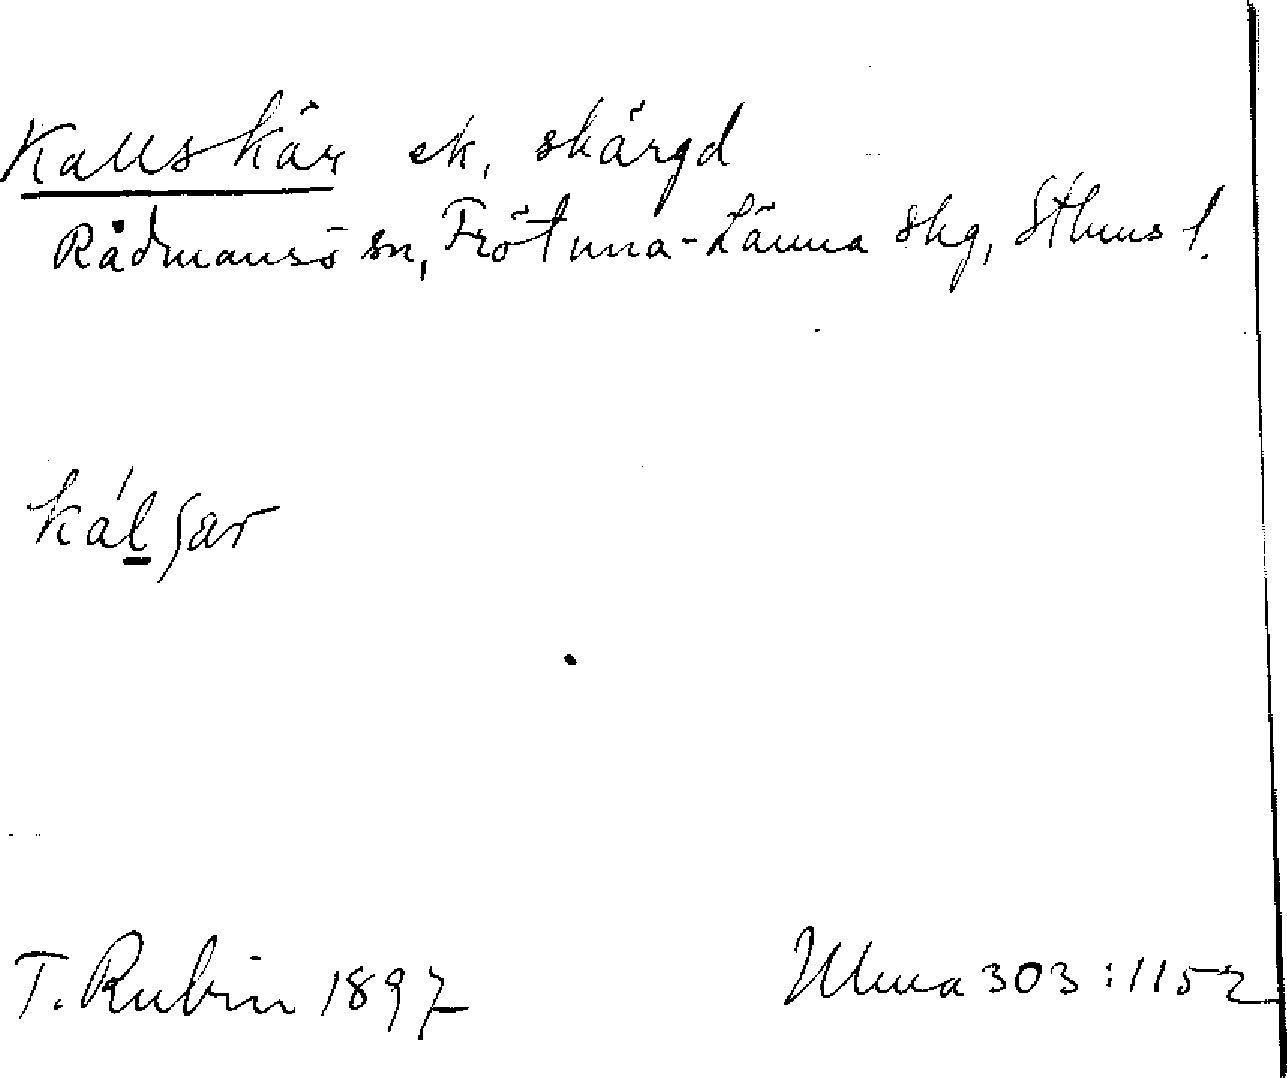 Kallskär ek, skärgd
Rådmansö sn, Frötuna-Länna skg, Sthms l.
kálʃar
T. Rubin 1897
Ulma 303:1152